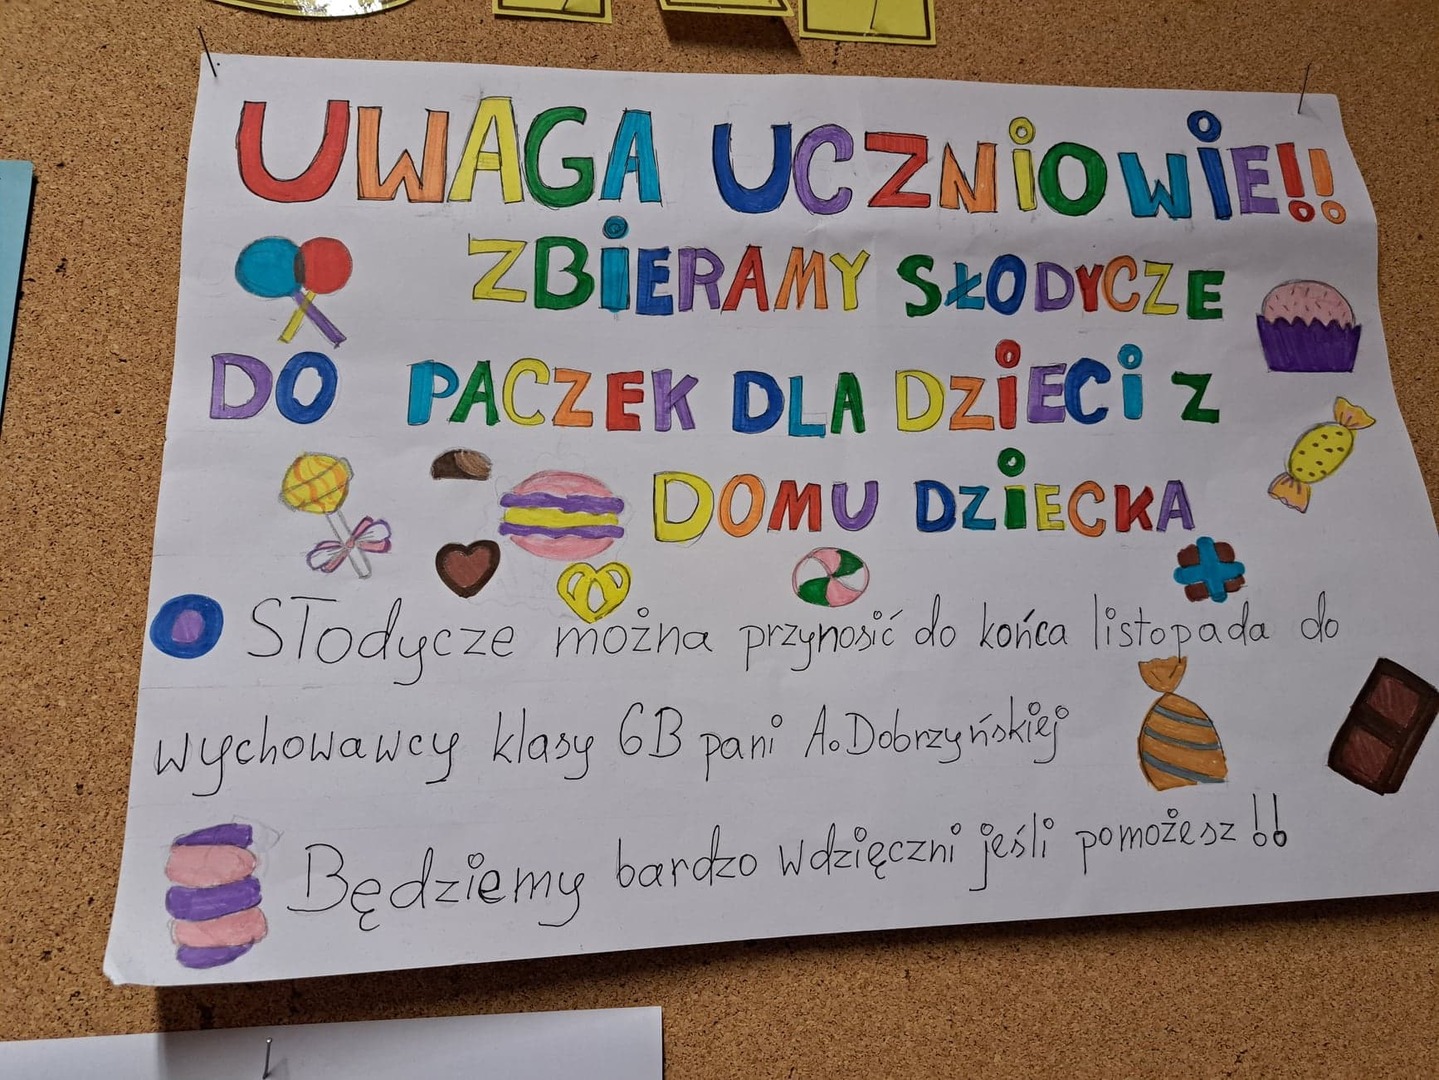 UWAGA UCZNIOWIE!!
ZBIERAMY SŁODYCZE
DO PACZEK DLA DZIECI Z
DOMU DZIECKA
Słodycze można przynosić do końca listopada do
wychowawcy klasy 6B pani A.Dobrzyńskiej
Będziemy bardzo wdzięczni jeśli pomożesz!!